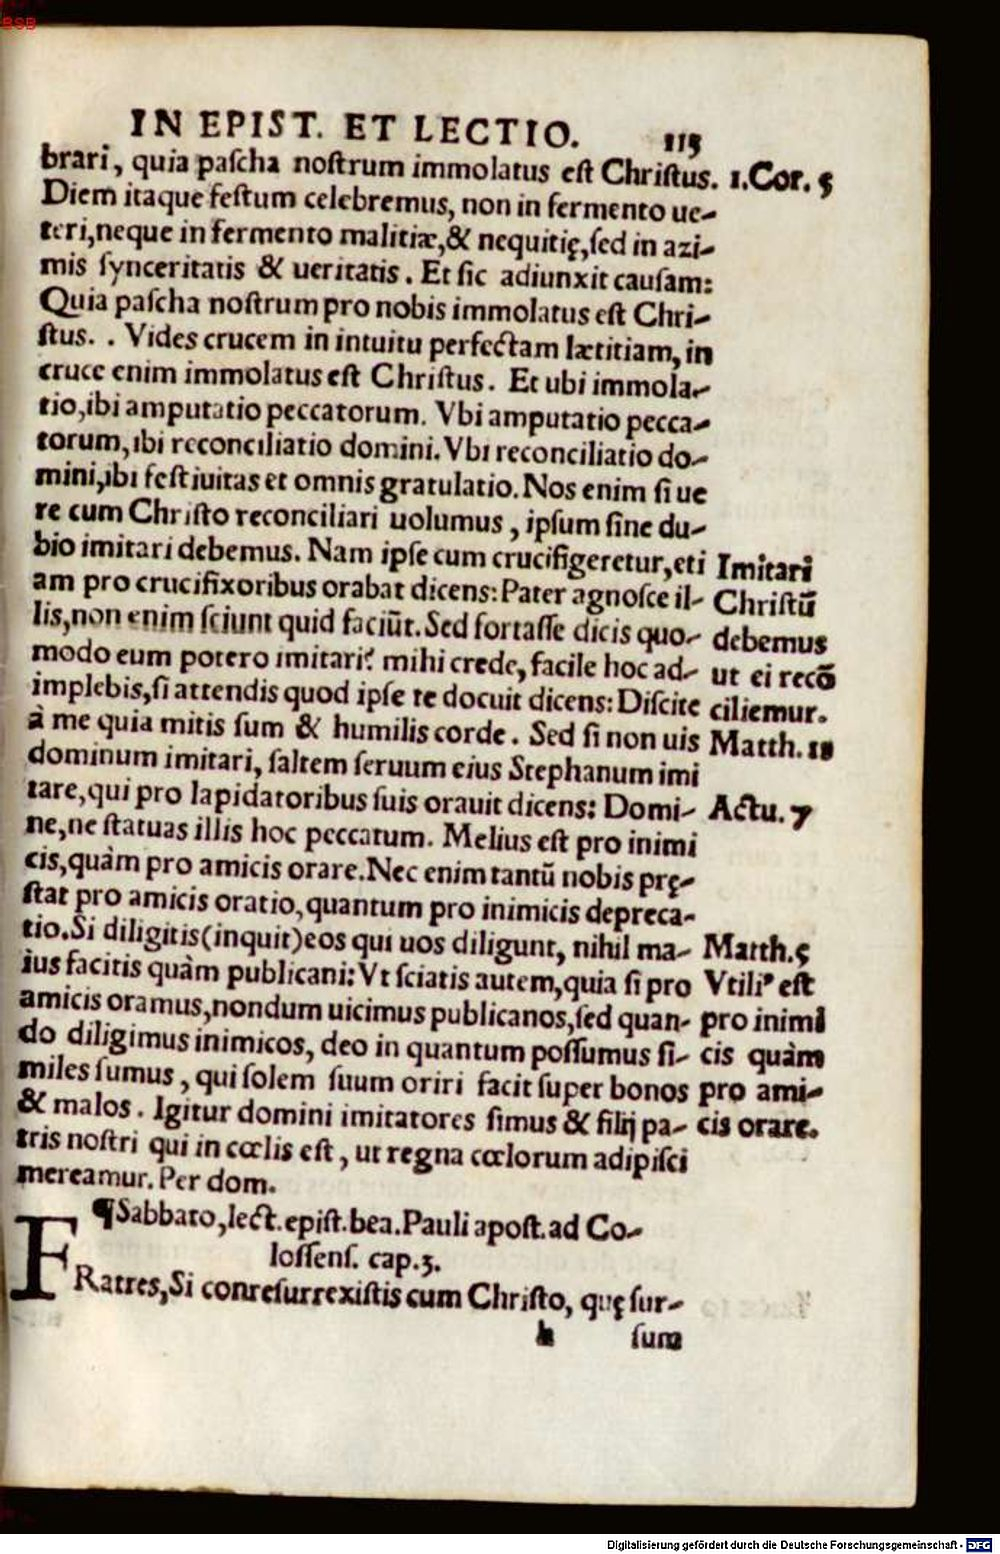 BSB
IN EPIST. ET LECTIO. 113
brari, quia paſcha noſtrum immolatus eſt Chriſtus. 1.Cor. 5
Diem itaque feſtum celebremus, non in fermento ue-
teri,neque in fermento malitiæ,& nequitię,ſed in azi-
mis ſynceritatis & ueritatis. Et ſic adiunxit cauſam:
Quia paſcha noſtrum pro nobis immolatus eſt Chri-
ſtus. . Vides crucem in intuitu perfectam lætitiam, in
cruce enim immolatus eſt Chriſtus. Et ubi immola-
tio,ibi amputatio peccatorum. Vbi amputatio pecca-
torum, ibi reconciliatio domini. Vbi reconciliatio do-
mini,ibi feſtiuitas et omnis gratulatio. Nos enim ſi ue
re cum Chriſto reconciliari uolumus, ipſum ſine du-
bio imitari debemus. Nam ipſe cum crucifigeretur,eti Imitari
am pro crucifixoribus orabat dicens: Pater agnoſce il- Chriſtũ
lis,non enim ſciunt quid faciũt. Sed fortaſſe dicis quo- debemus
modo eum potero imitari? mihi crede, facile hoc ad- ut ei recõ
implebis,ſi attendis quod ipſe te docuit dicens: Diſcite ciliemur.
à me quia mitis ſum & humilis corde. Sed ſi non uis Matth. 11
dominum imitari, ſaltem ſeruum eius Stephanum imi
tare,qui pro lapidatoribus ſuis orauit dicens: Domi- Actu. 7
ne,ne ſtatuas illis hoc peccatum. Melius eſt pro inimi
cis,quàm pro amicis orare. Nec enim tantũ nobis prę-
ſtat pro amicis oratio,quantum pro inimicis depreca-
tio. Si diligitis(inquit)eos qui uos diligunt, nihil ma- Matth.5
ius facitis quàm publicani: Vt ſciatis autem,quia ſi pro Vtiliꝰ eſt
amicis oramus,nondum uicimus publicanos,ſed quan- pro inimi
do diligimus inimicos, deo in quantum poſſumus ſi- cis quàm
miles ſumus, qui ſolem ſuum oriri facit ſuper bonos pro ami-
& malos. Igitur domini imitatores ſimus & filij pa- cis orare.
tris noſtri qui in cœlis eſt, ut regna cœlorum adipiſci
mereamur. Per dom.
¶Sabbato,lect.epiſt.bea.Pauli apoſt.ad Co-
loſſenſ. cap.3.
FRatres,Si conreſurrexiſtis cum Chriſto, quę ſur-
h ſum
Digitalisierung gefördert durch die Deutsche Forschungsgemeinschaft - DFG